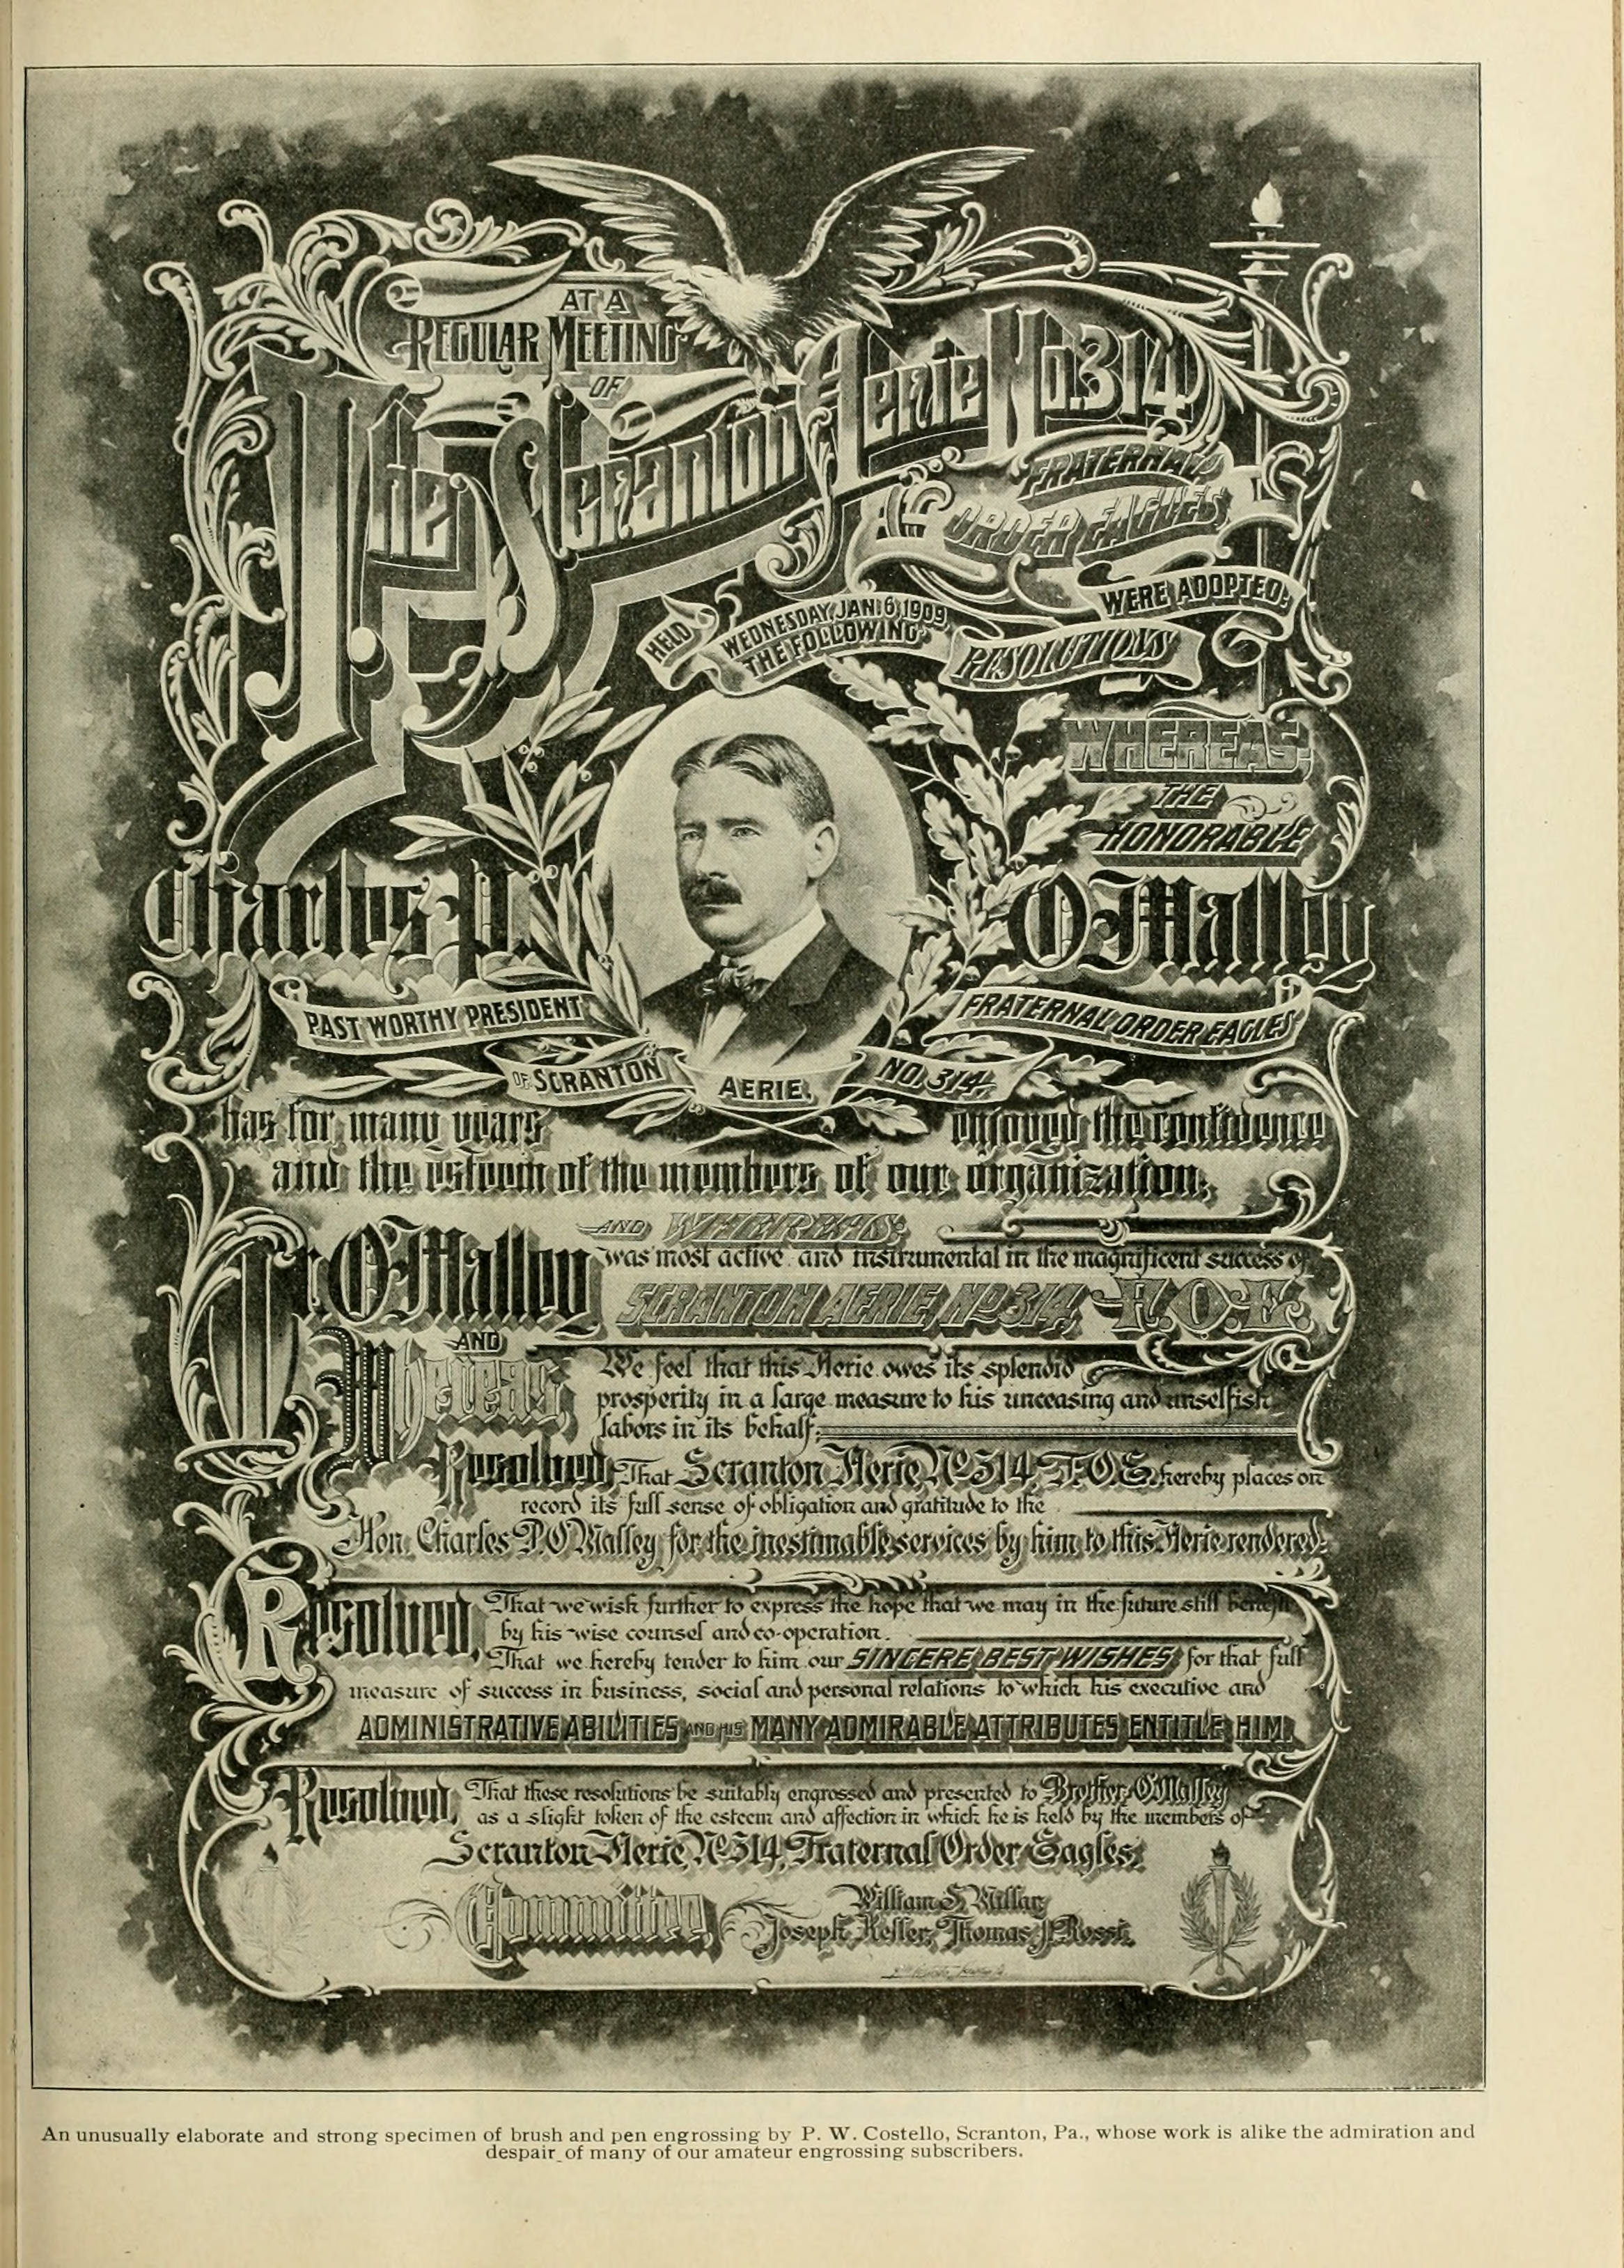 AT A
REGULAR MEETING
OF
The Scranton Aerie No. 314
FRATERNAL
ORDER EAGLES
HELD WEDNESDAY, JAN. 6, 1909,
THE FOLLOWING
RESOLUTIONS
WERE ADOPTED:
WHEREAS;
THE
HONORABLE
Charles P. O'Malley
PAST WORTHY PRESIDENT
OF SCRANTON AERIE. NO. 314,
FRATERNAL ORDER EAGLES
has for many years enjoyed the confidence
and the esteem of the members of our organization;
AND WHEREAS;
Mr. O'Malley was most active and instrumental in the magnificent success of
SCRANTON AERIE, No 314, F.O.E.
AND
Whereas, We feel that this Aerie owes its splendid
prosperity in a large measure to his unceasing and unselfish
labors in its behalf;
Resolved, That Scranton Aerie, No 314, F.O.E. hereby places on
record its full sense of obligation and gratitude to the
Hon. Charles P. O'Malley for the inestimable services by him to this Aerie rendered;
Resolved, That we wish further to express the hope that we may in the future still benefit
by his wise counsel and co-operation.
That we hereby tender to him our SINCERE BEST WISHES for that full
measure of success in business, social and personal relations to which his executive and
ADMINISTRATIVE ABILITIES AND HIS MANY ADMIRABLE ATTRIBUTES ENTITLE HIM.
Resolved, That these resolutions be suitably engrossed and presented to Brother O'Malley
as a slight token of the esteem and affection in which he is held by the members of
Scranton Aerie, No 314, Fraternal Order Eagles;
Committee,
William S. Millar,
Joseph Keller, Thomas J. Rossi.
An unusually elaborate and strong specimen of brush and pen engrossing by P. W. Costello, Scranton, Pa., whose work is alike the admiration and
despair of many of our amateur engrossing subscribers.